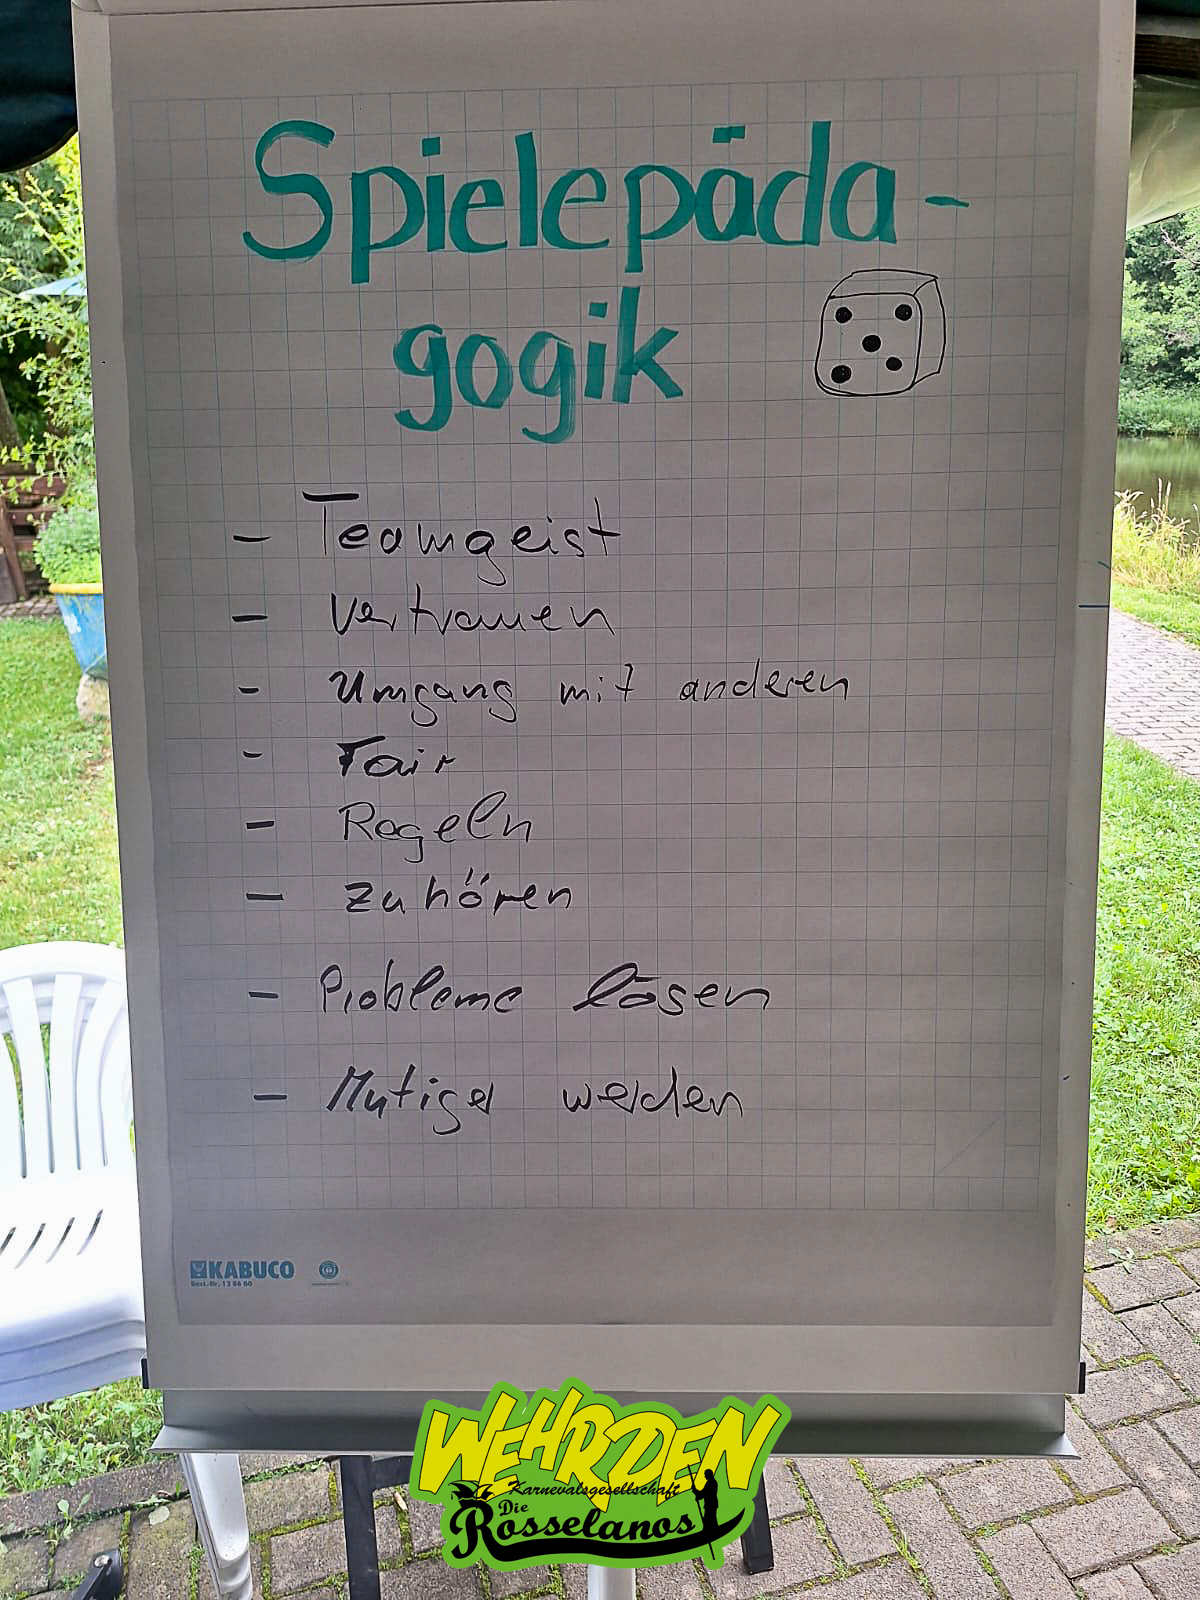 Spielepäda-
gogik
- Teamgeist
- Vertrauen
- Umgang mit anderen
- Fair
- Regeln
- Zuhören
- Probleme lösen
- Mutiger werden
KABUCO
Best.-Nr. 13 86 60
WEHRDEN
Karnevalsgesellschaft
Die
Rosselanos